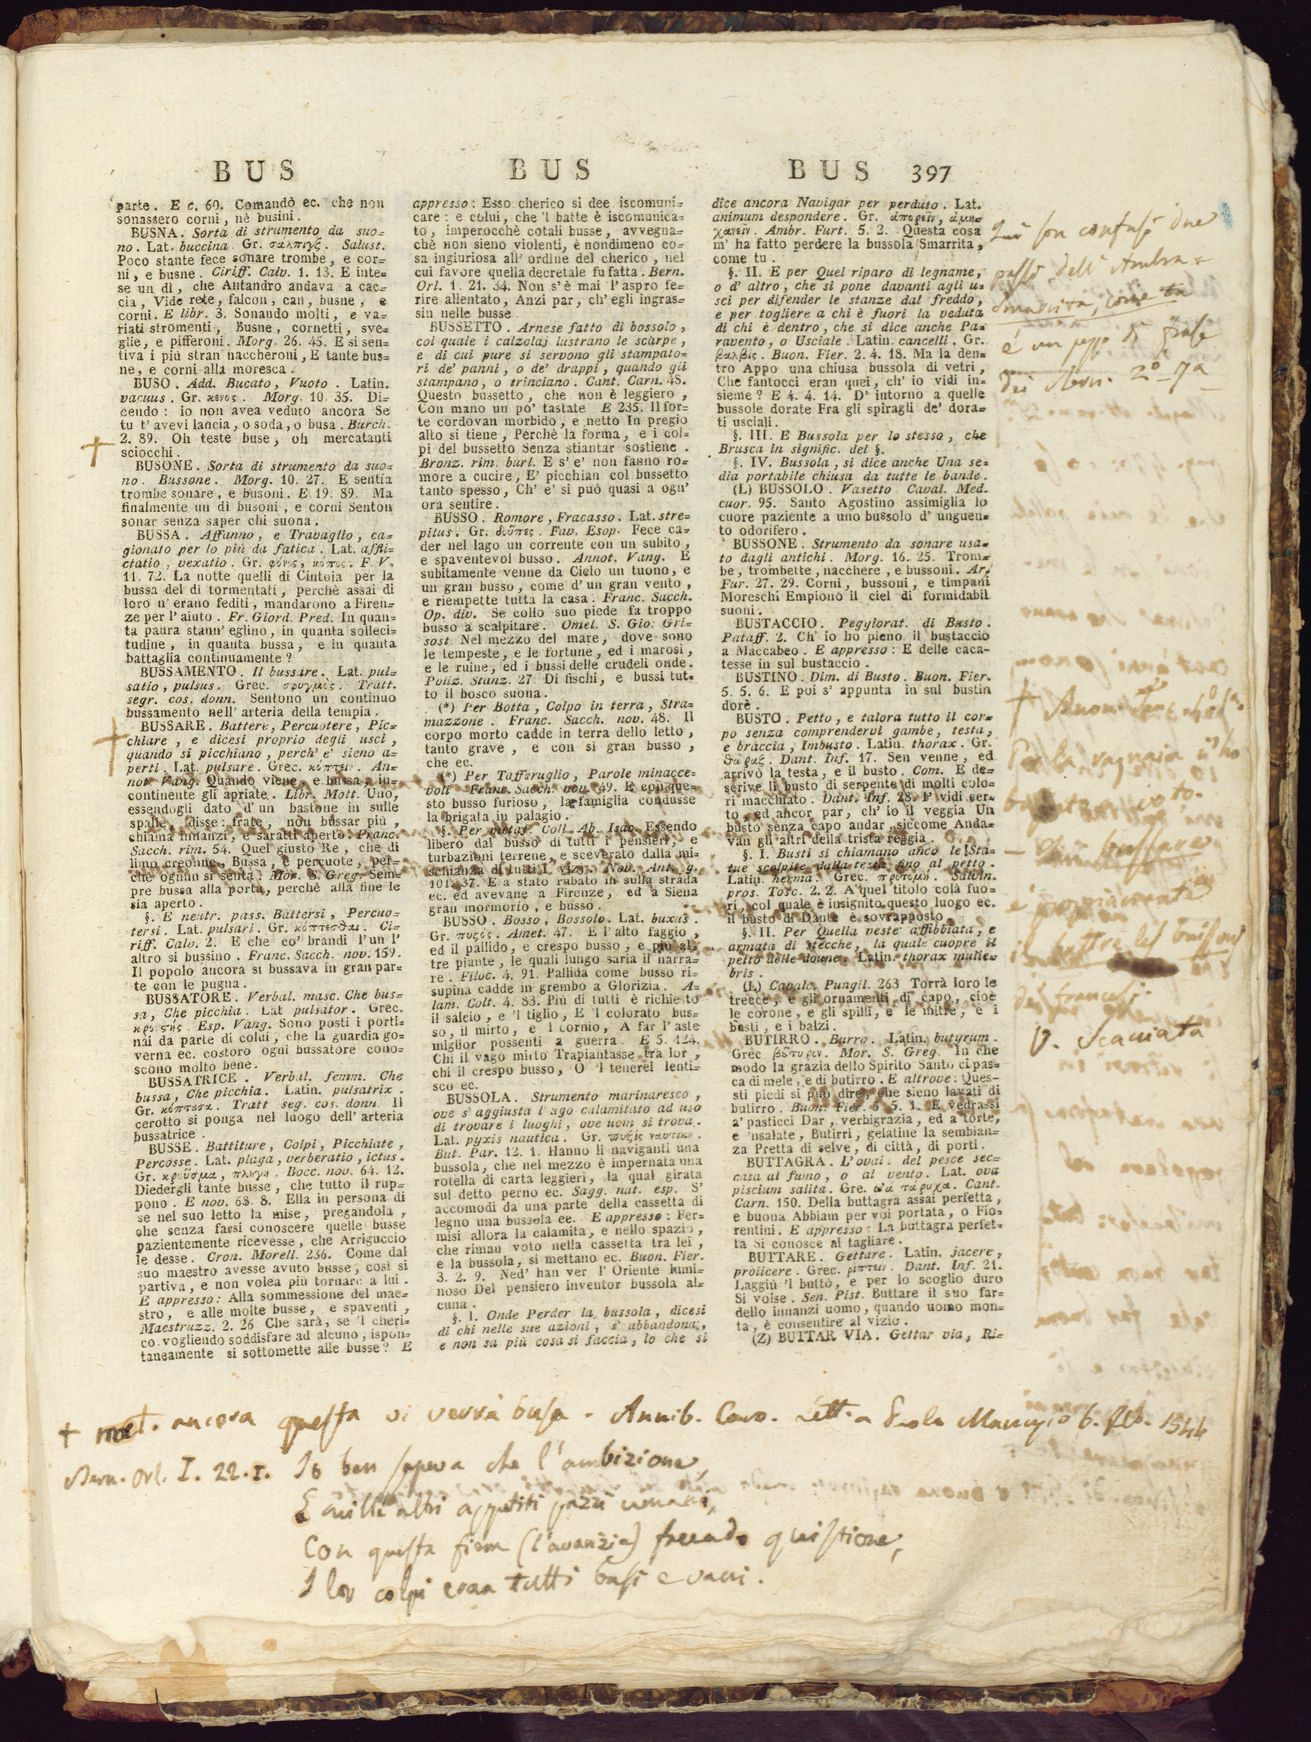 BUS BUS BUS 397
parte. E c. 60. Comandò ec. che non
sonassero corni, nè busini.
BUSNA. Sorta di strumento da suo=
no. Lat. buccina. Gr. σαλπιγξ. Salust.
Poco stante fece sonare trombe, e cor=
ni, e busne. Ciriff. Calv. 1. 13. E inte=
se un dì, che Antandro andava a cac=
cia, Vide rete, falcon, can, busne, e
corni. E libr. 3. Sonando molti, e va=
riati stromenti, Busne, cornetti, sve=
glie, e pifferoni. Morg. 26. 45. E si sen=
tiva i più stran naccheroni, E tante bus=
ne, e corni alla moresca.
BUSO. Add. Bucato, Vuoto. Latin.
vacuus. Gr. κενος. Morg. 10. 35. Di=
cendo: io non avea veduto ancora Se
tu t' avevi lancia, o soda, o busa. Burch.
2. 89. Oh teste buse, oh mercatanti
sciocchi.
BUSONE. Sorta di strumento da suo=
no. Bussone. Morg. 10. 27. E sentia
trombe sonare, e busoni. E 19. 89. Ma
finalmente un di busoni, e corni Senton
sonar senza saper chi suona.
BUSSA. Affanno, e Travaglio, ca=
gionato per lo più da fatica. Lat. affli=
ctatio, vexatio. Gr. πόνος, κόπος. F. V.
11. 72. La notte quelli di Cintoia per la
bussa del dì tormentati, perchè assai di
loro n' erano fediti, mandarono a Firen=
ze per l' aiuto. Fr. Giord. Pred. In quan=
ta paura stann' eglino, in quanta solleci=
tudine, in quanta bussa, e in quanta
battaglia continuamente?
BUSSAMENTO. Il bussare. Lat. pul=
satio, pulsus. Grec. σφυγμός. Tratt.
segr. cos. donn. Sentono un continuo
bussamento nell' arteria della tempia.
BUSSARE. Battere, Percuotere, Pic=
chiare, e dicesi proprio degli usci,
quando si picchiano, perch' e' sieno a=
perti. Lat. pulsare. Grec. κόπτειν. An=
not. Vang. Quando viene, e bussa, in=
continente gli apriate. Libr. Mott. Uno,
essendogli dato d' un bastone in sulle
spalle, disse: frate, non bussar più,
chiama innanzi, e saratti aperto. Franc.
Sacch. rim. 54. Quel giusto Re, che di
limo creonne, Bussa, e percuote, per=
chè ognun si senta. Mor. S. Greg. Sem=
pre bussa alla porta, perchè alla fine le
sia aperto.
§. E neutr. pass. Battersi, Percuo=
tersi. Lat. pulsari. Gr. κόπτεσθαι. Ci=
riff. Calv. 2. E che co' brandi l' un l'
altro si bussino. Franc. Sacch. nov. 159.
Il popolo ancora si bussava in gran par=
te con le pugna.
BUSSATORE. Verbal. masc. Che bus=
sa, Che picchia. Lat. pulsator. Grec.
Esp. Vang. Sono posti i porti=
nai da parte di colui, che la guardia go=
verna ec. costoro ogni bussatore cono=
scono molto bene.
BUSSATRICE. Verbal. femm. Che
bussa, Che picchia. Latin. pulsatrix.
Gr. Tratt segr. cos. donn. Il
cerotto si ponga nel luogo dell' arteria
bussatrice.
BUSSE. Battiture, Colpi, Picchiate,
Percosse. Lat. plaga, verberatio, ictus.
Gr. κροῦσμα, πληγή. Bocc. nov. 64. 12.
Diedergli tante busse, che tutto il rup=
pono. E nov. 68. 8. Ella in persona di
se nel suo letto la mise, pregandola,
che senza farsi conoscere quelle busse
pazientemente ricevesse, che Arriguccio
le desse. Cron. Morell. 256. Come dal
suo maestro avesse avuto busse, così si
partiva, e non volea più tornare a lui.
E appresso: Alla sommessione del mae=
stro, e alle molte busse, e spaventi,
Maestruzz. 2. 26 Che sarà, se 'l cheri=
co vogliendo soddisfare ad alcuno, ispon=
taneamente si sottomette alle busse? E
appresso: Esso cherico si dee iscomuni=
care: e colui, che 'l batte è iscomunica=
to, imperocchè cotali busse, avvegna=
chè non sieno violenti, è nondimeno co=
sa ingiuriosa all' ordine del cherico, nel
cui favore quella decretale fu fatta. Bern.
Orl. 1. 21. 34. Non s' è mai l' aspro fe=
rire allentato, Anzi par, ch' egli ingras=
sin nelle busse.
BUSSETTO. Arnese fatto di bossolo,
col quale i calzolaj lustrano le scarpe,
e di cui pure si servono gli stampato=
ri de' panni, o de' drappi, quando gli
stampano, o trinciano. Cant. Carn. 48.
Questo bussetto, che non è leggiero,
Con mano un po' tastate E 235. Il for=
te cordovan morbido, e netto In pregio
alto si tiene, Perchè la forma, e i col=
pi del bussetto Senza stiantar sostiene.
Bronz. rim. burl. E s' e' non fanno ro=
more a cucire, E' picchian col bussetto
tanto spesso, Ch' e' si può quasi a ogn'
ora sentire.
BUSSO. Romore, Fracasso. Lat. stre=
pitus. Gr. δοῦπος. Fav. Esop. Fece ca=
der nel lago un corrente con un subito,
e spaventevol busso. Annot. Vang. E
subitamente venne da Cielo un tuono, e
un gran busso, come d' un gran vento,
e riempette tutta la casa. Franc. Sacch.
Op. div. Se collo suo piede fa troppo
busso a scalpitare. Omel. S. Gio: Gri=
sost. Nel mezzo del mare, dove sono
le tempeste, e le fortune, ed i marosi,
e le ruine, ed i bussi delle crudeli onde.
Poliz. Stanz. 27. Di fischi, e bussi tut=
to il bosco suona.
(*) Per Botta, Colpo in terra, Stra=
mazzone. Franc. Sacch. nov. 48. Il
corpo morto cadde in terra dello letto,
tanto grave, e con sì gran busso,
che ec.
(*) Per Tafferuglio, Parole minacce=
voli. Franc. Sacch. nov. 49. E con que=
sto busso furioso, la famiglia condusse
la brigata in palagio.
§. Per metaf. Coll. Ab. Isac. Essendo
libero dal busso di tutti i pensieri, e
turbazioni terrene, e sceverato dalla mi=
schianza di tutti i vizj. Nov. Ant. g.
101. 37. E a stato rubato in sulla strada
ec. ed avevane a Firenze, ed a Siena
gran mormorio, e busso.
BUSSO. Bosso, Bossolo. Lat. buxus.
Gr. πυξος. Amet. 47. E l' alto faggio,
ed il pallido, e crespo busso, e più al=
tre piante, le quali lungo saria il narra=
re. Filoc. 4. 91. Pallida come busso ri=
supina cadde in grembo a Glorizia. A=
lam. Colt. 4. 83. Più di tutti è richiesto
il salcio, e 'l tiglio, E 'l colorato bus=
so, il mirto, e 'l cornio, A far l' aste
miglior possenti a guerra. E 5. 124.
Chi il vago mirto Trapiantasse tra lor,
chi il crespo busso, O 'l tenerel lenti=
sco ec.
BUSSOLA. Strumento marinaresco,
ove s' aggiusta l' ago calamitato ad uso
di trovare i luoghi, ove uom si trova.
Lat. pyxis nautica. Gr. πυξὶς ναυτική.
But. Par. 12. 1. Hanno li naviganti una
bussola, che nel mezzo è impernata una
rotella di carta leggieri, la qual girata
sul detto perno ec. Sagg. nat. esp. S'
accomodi da una parte della cassetta di
legno una bussola ec. E appresso: Fer=
misi allora la calamita, e nello spazio,
che riman voto nella cassetta tra lei,
e la bussola, si mettano ec. Buon. Fier.
3. 2. 9. Ned' han ver l' Oriente lumi=
noso Del pensiero inventor bussola al=
cuna.
§. I. Onde Perder la bussola, dicesi
di chi nelle sue azioni, s' abbandona,
e non sa più cosa si faccia, lo che si
dice ancora Navigar per perduto. Lat.
animum despondere. Gr. ἀπορεῖν, ἀμη=
χανεῖν. Ambr. Furt. 5. 2. Questa cosa
m' ha fatto perdere la bussola Smarrita,
come tu.
§. II. E per Quel riparo di legname,
o d' altro, che si pone davanti agli u=
sci per difender le stanze dal freddo,
e per togliere a chi è fuori la veduta
di chi è dentro, che si dice anche Pa=
ravento, o Usciale. Latin. cancelli. Gr.
Buon. Fier. 2. 4. 18. Ma la den=
tro Appo una chiusa bussola di vetri,
Che fantocci eran quei, ch' io vidi in=
sieme? E 4. 4. 14. D' intorno a quelle
bussole dorate Fra gli spiragli de' dora=
ti usciali.
§. III. E Bussola per lo stesso, che
Brusca in signific. del §.
§. IV. Bussola, si dice anche Una se=
dia portabile chiusa da tutte le bande.
(L) BUSSOLO. Vasetto Caval. Med.
cuor. 95. Santo Agostino assimiglia lo
cuore paziente a uno bussolo d' unguen=
to odorifero.
BUSSONE. Strumento da sonare usa=
to dagli antichi. Morg. 16. 25. Trom=
be, trombette, nacchere, e bussoni. Ar.
Fur. 27. 29. Corni, bussoni, e timpani
Moreschi Empiono il ciel di formidabil
suoni.
BUSTACCIO. Peggiorat. di Busto.
Pataff. 2. Ch' io ho pieno il bustaccio
a Maccabeo. E appresso: E delle caca=
tesse in sul bustaccio.
BUSTINO. Dim. di Busto. Buon. Fier.
5. 5. 6. E poi s' appunta in sul bustin
dorè.
BUSTO. Petto, e talora tutto il cor=
po senza comprendervi gambe, testa,
e braccia, Imbusto. Latin. thorax. Gr.
θώραξ. Dant. Inf. 17. Sen venne, ed
arrivò la testa, e il busto. Com. E de=
scrive il busto di serpente di molti colo=
ri macchiato. Dant. Inf. 28. I' vidi cer=
to, ed ancor par, ch' io il veggia Un
busto senza capo andar, siccome Anda=
van gli altri della trista reggia.
§. I. Busti si chiamano anco le Sta=
tue scolpite dalla testa fino al petto.
Latin. herma. Grec. προτομή. Salvin.
pros. Tosc. 2. 2. A quel titolo colà fuo=
ri, col quale è insignito questo luogo ec.
il busto di Dante è sovrapposto.
§. II. Per Quella veste affibbiata, e
armata di stecche, la quale cuopre il
petto delle donne. Latin. thorax mulie=
bris.
(L) Cavalc. Pungil. 263 Torrà loro le
trecce, e gli ornamenti di capo, cioè
le corone, e gli spilli, e le mitre, e i
busti, e i balzi.
BUTIRRO. Burro. Latin. butyrum.
Grec. βούτυρον. Mor. S. Greg. In che
modo la grazia dello Spirito Santo ci pas=
ca di mele, e di butirro. E altrove: Ques=
sti piedi si può dire, che sieno lavati di
butirro. Buon. Fier. 5. 5. 1. E vedrassi
a' pasticci Dar, verbigrazia, ed a torte,
e 'nsalate, Butirri, gelatine la sembian=
za Pretta di selve, di città, di porti.
BUTTAGRA. L' ovaia del pesce sec=
casa al fumo, o al vento. Lat. ova
piscium salita. Gre. ὠὰ τάριχα. Cant.
Carn. 150. Della buttagra assai perfetta,
e buona Abbiam per voi portata, o Fio=
rentini. E appresso: La buttagra perfet=
ta Si conosce al tagliare.
BUTTARE. Gettare. Latin. jacere,
proiicere. Grec. ῥίπτειν. Dant. Inf. 21.
Laggiù 'l buttò, e per lo scoglio duro
Si volse. Sen. Pist. Buttare il suo far=
dello innanzi uomo, quando uomo mon=
ta, è consentire al vizio.
(Z) BUTTAR VIA. Gettar via, Ri=
Qui son confusi due
passi dell' Ambra
smarrita, come tu
è un pezzo di frase
dei Bern. 2º 7ª
bussare
è propriamente
il battre les buissons
dei francesi.
V. Scacciata
+ ancora questa vi verrà busa. Annib. Caro. Lett. a Paolo Manuzio 6. 1544
Bern. Orl. I. 22. 1. Io ben sapeva che l' ambizione,
E mille altri appetiti pazzi umani,
Con questa fiera (l'avarizia) facendo quistione,
I lor colpi eran tutti busi e vani.